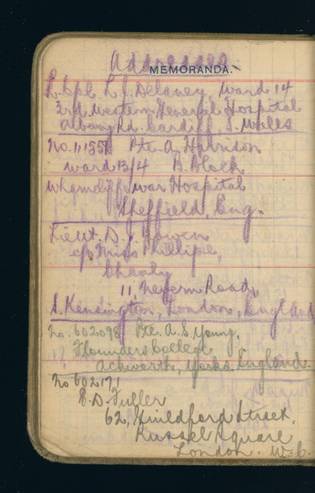 Addresses
MEMORANDA.
L. Cpl L. J. Delaney Ward 14
3rd Western General Hospital
Albany Rd. Cardiff S. Wales
No. 11558 Pte. A. Harrison
Ward 13/4 B. Block
Wharncliffe War Hospital
Sheffield, Eng.
Lieut. D. J. Cowen
c/o Miss Phillipe,
11, Nevern Road,
S. Kensington, London, England
No. 602098 Pte. A. S. Young,
Flounders College,
Ackworth, Yorks. England.
No 602171
E. D. Fuller
62, Guildford Street.
Russel Square
London. W.C.